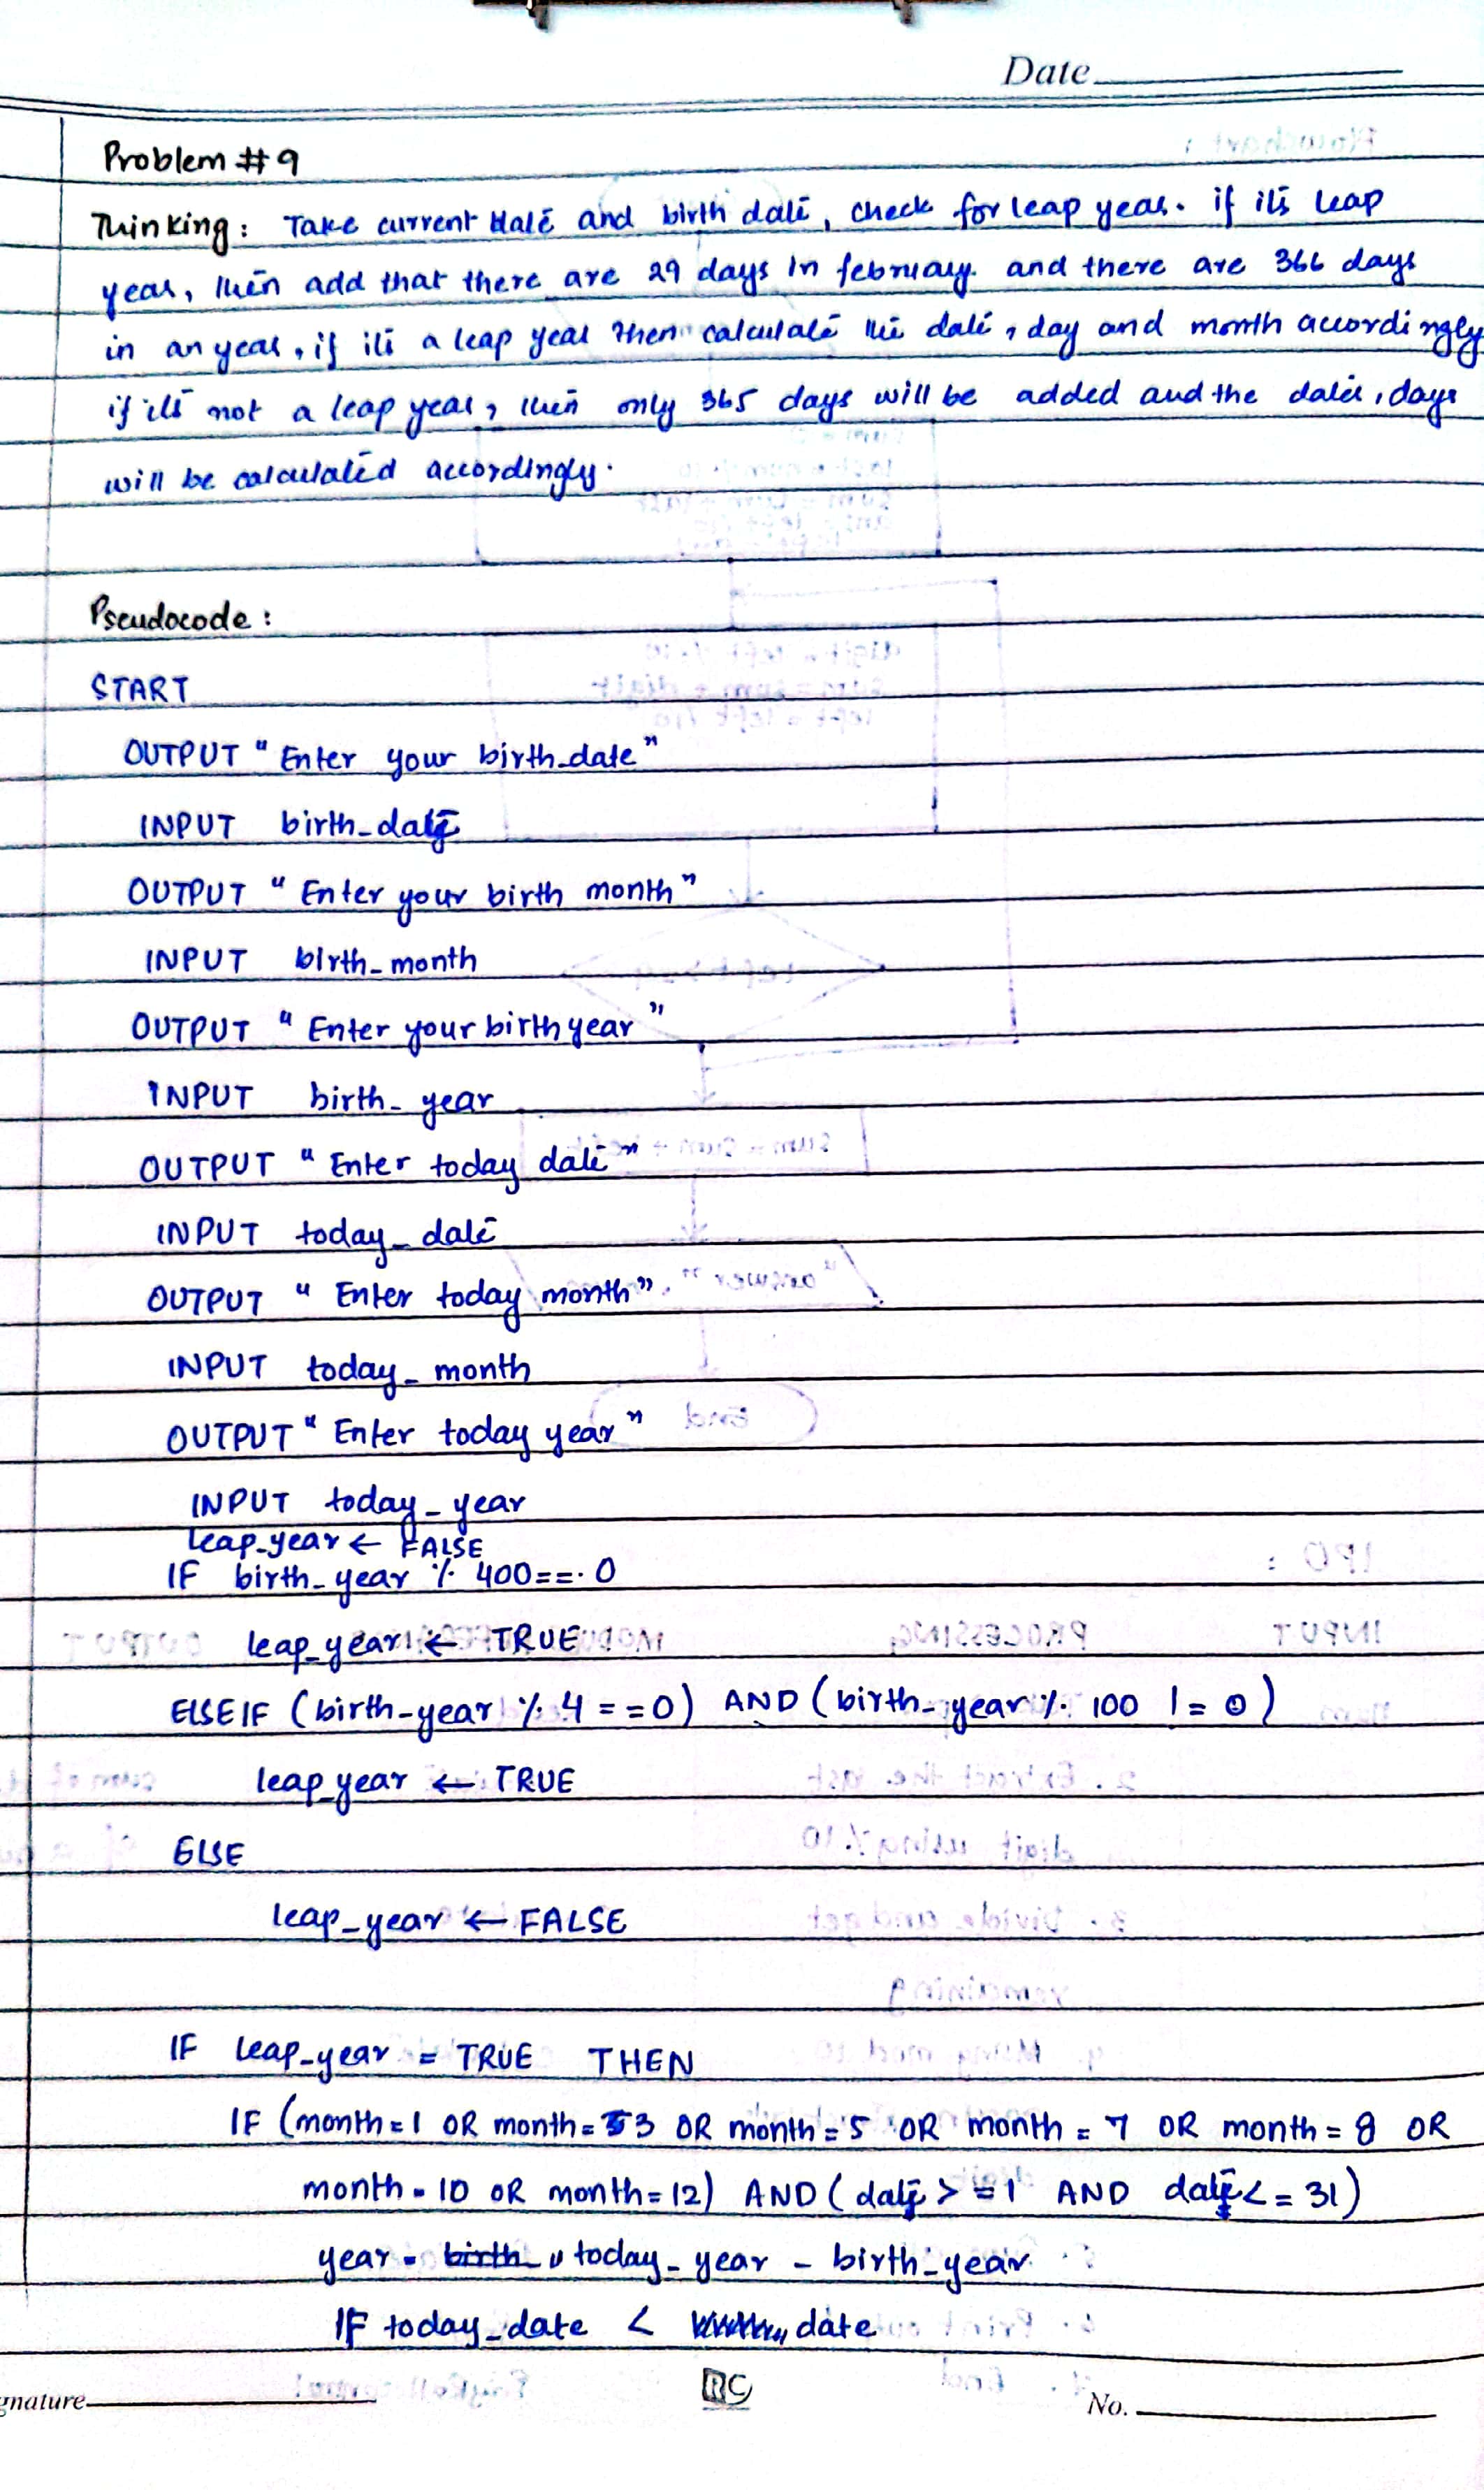 Date
Problem #9
Thinking: Take current date and birth date, check for leap year. if it's leap
year, then add that there are 29 days in february. and there are 366 days
in an year, if it's a leap year then calculate the date, day and month accordingly
if it's not a leap year, then only 365 days will be added and the dates, days
will be calculated accordingly.
Pseudocode:
START
OUTPUT "Enter your birth_date"
INPUT birth_date
OUTPUT "Enter your birth month"
INPUT birth_month
OUTPUT "Enter your birth year"
INPUT birth_year
OUTPUT "Enter today date"
INPUT today_date
OUTPUT "Enter today month"
INPUT today_month
OUTPUT "Enter today year"
INPUT today_year
leap_year ← FALSE
IF birth_year % 400 == 0
leap_year ← TRUE
ELSE IF (birth_year % 4 == 0) AND (birth_year % 100 != 0)
leap_year ← TRUE
ELSE
leap_year ← FALSE
IF leap_year = TRUE THEN
IF (month = 1 OR month = 3 OR month = 5 OR month = 7 OR month = 8 OR
month = 10 OR month = 12) AND (date >= 1 AND date <= 31)
year = today_year - birth_year
IF today_date < date
gnature
RC
No.